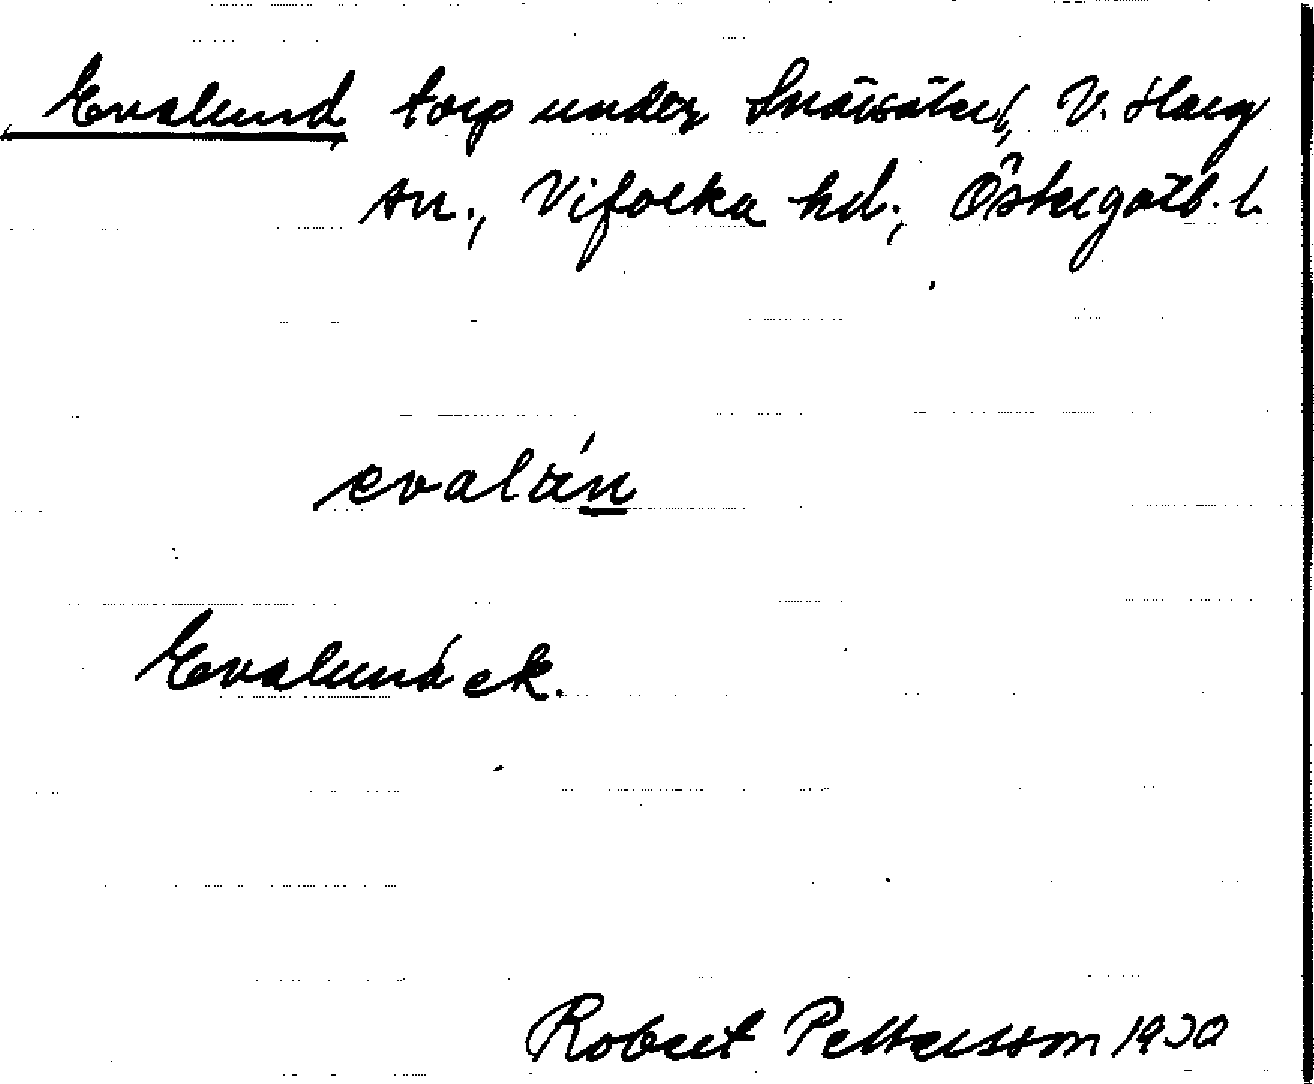 Evalund, torp under Snärsäter, V. Harg
sn., Vifolka hd., Östergötl. l.
evalún
Evalund ek.
Robert Pettersson 1930